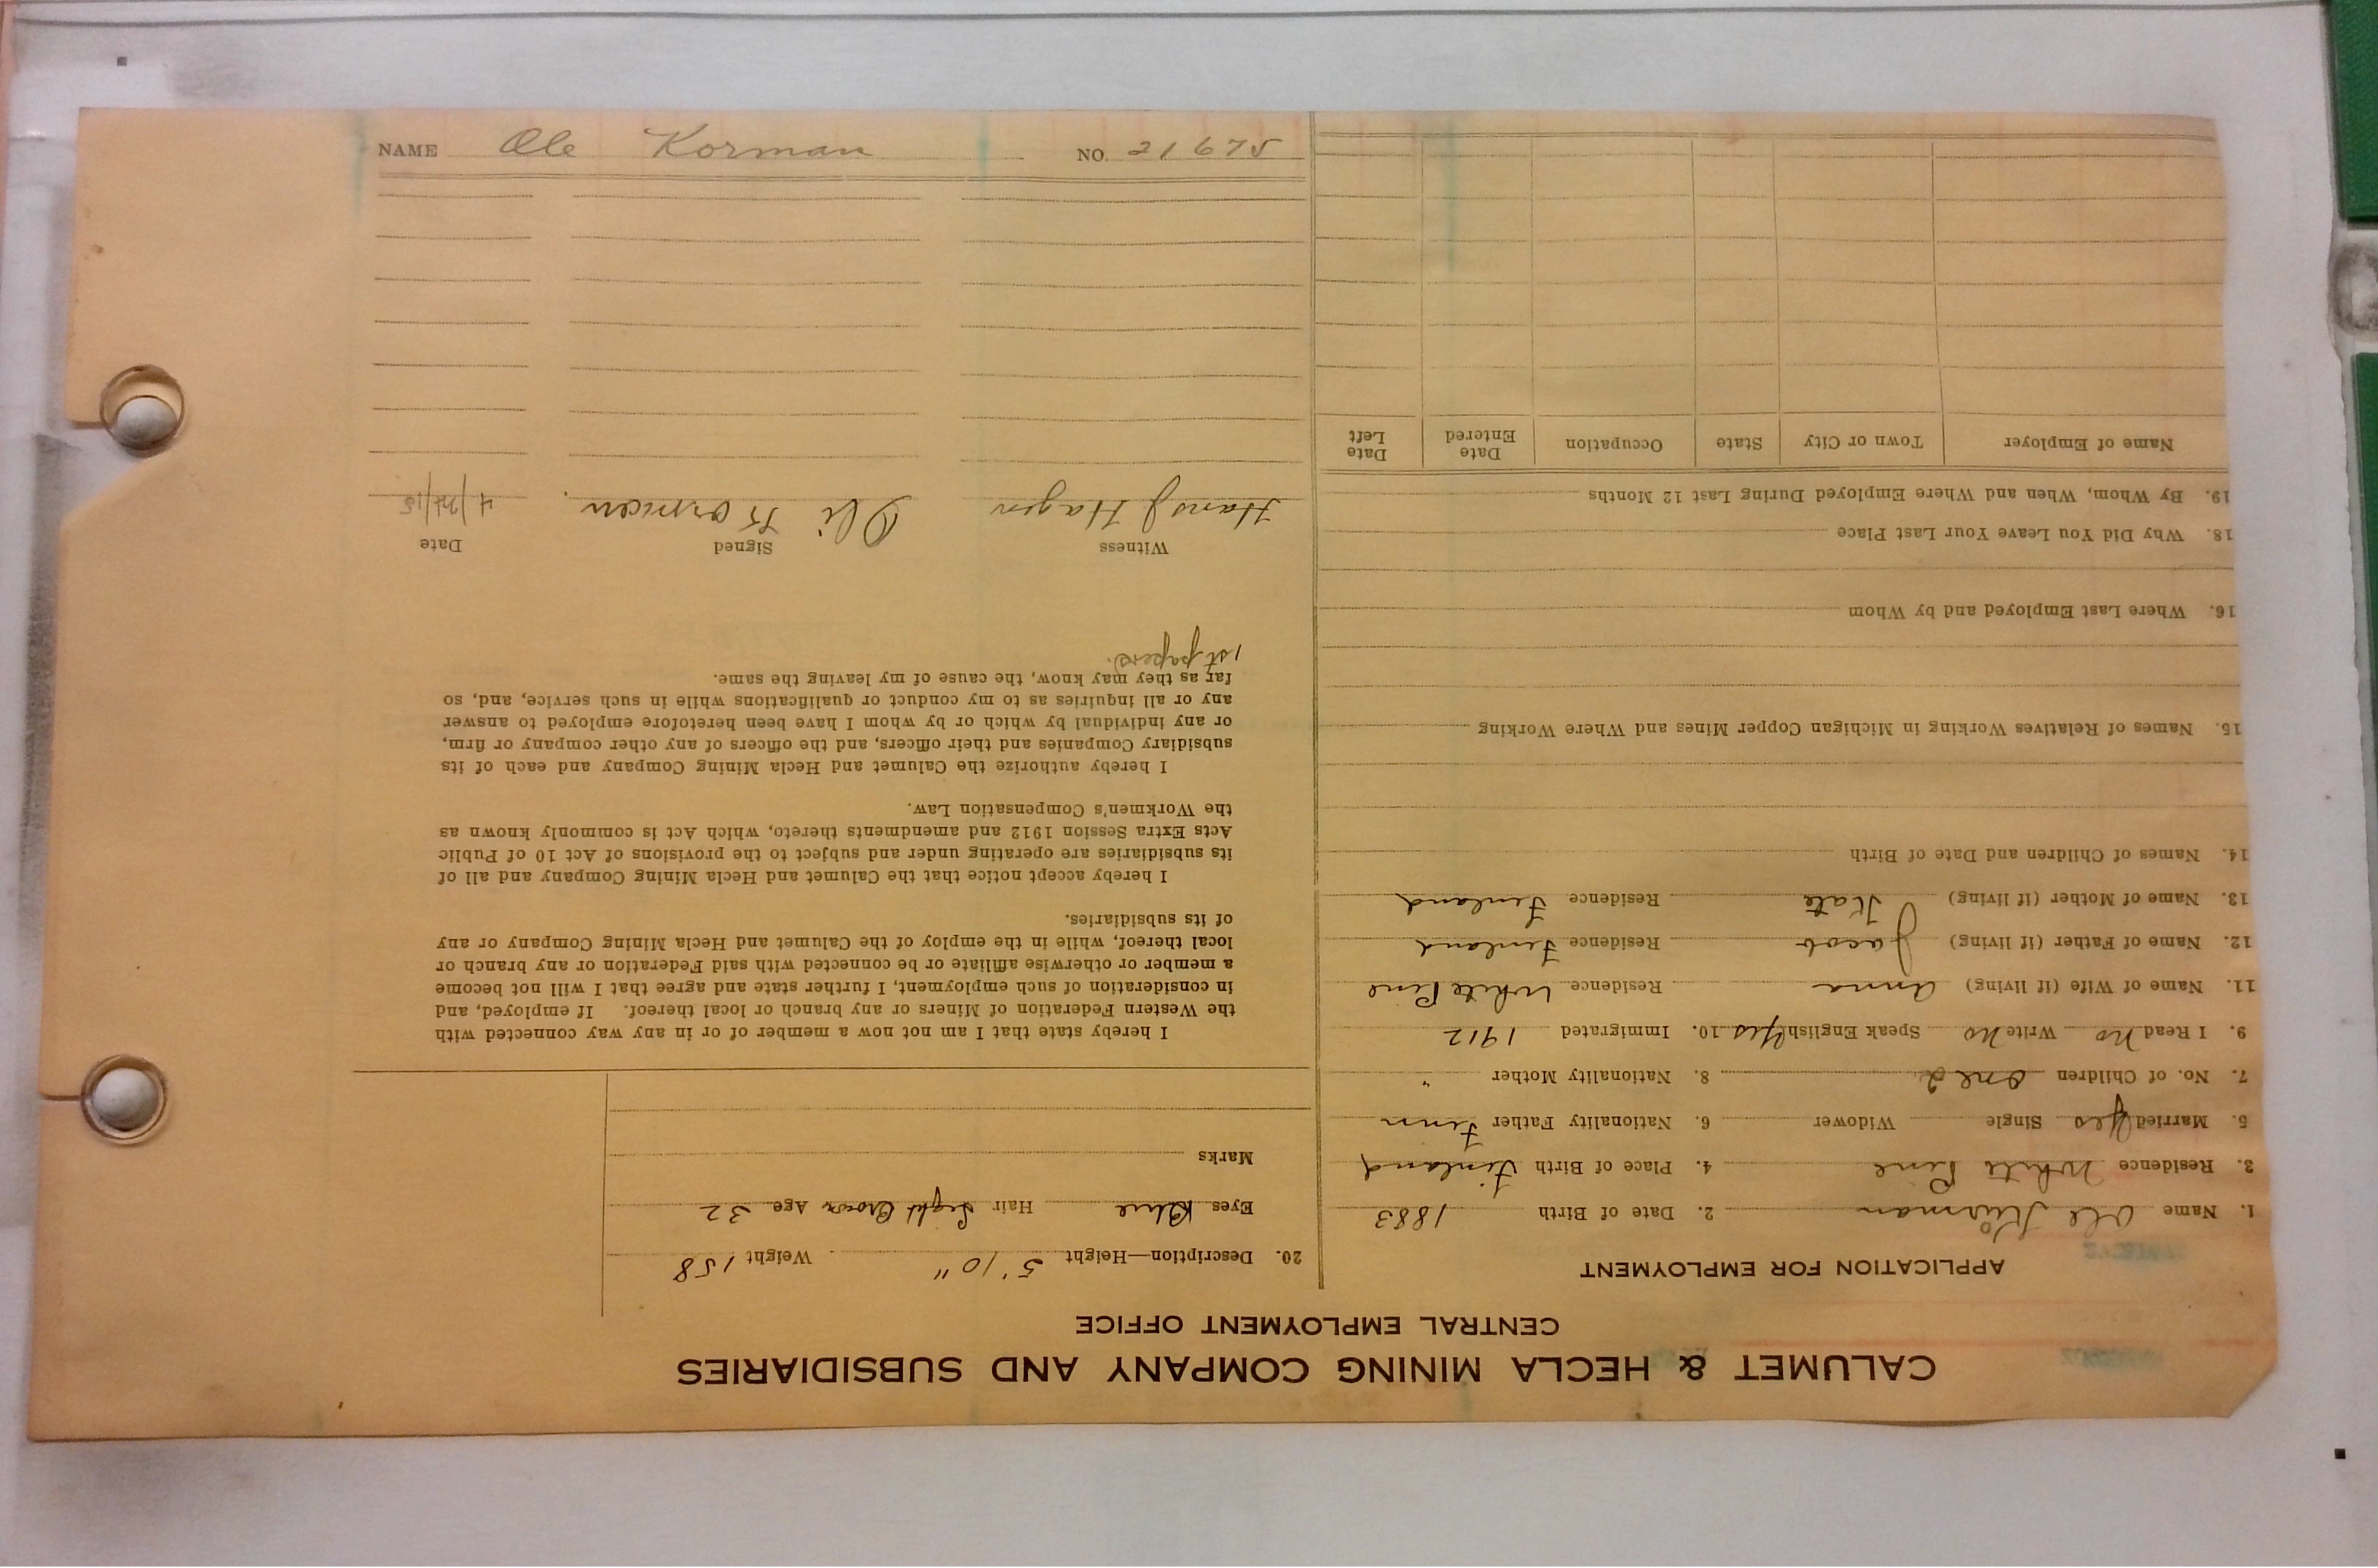 CALUMET & HECLA MINING COMPANY AND SUBSIDIARIES
CENTRAL EMPLOYMENT OFFICE
APPLICATION FOR EMPLOYMENT
1. Name Ole Korman 2. Date of Birth 1883
3. Residence White Pine 4. Place of Birth Finland
5. Married Yes Single Widower 6. Nationality Father Finn
7. No. of Children one 2 8. Nationality Mother "
9. I Read No Write No Speak English Yes 10. Immigrated 1912
11. Name of Wife (if living) Anna Residence White Pine
12. Name of Father (if living) Jacob Residence Finland
13. Name of Mother (if living) Kate Residence Finland
14. Names of Children and Date of Birth
15. Names of Relatives Working in Michigan Copper Mines and Where Working
16. Where Last Employed and by Whom
18. Why Did You Leave Your Last Place
19. By Whom, When and Where Employed During Last 12 Months
Name of Employer Town or City State Occupation Date Entered Date Left
20. Description—Height 5' 10" Weight 158
Eyes Blue Hair Light Brown Age 32
Marks
I hereby state that I am not now a member of or in any way connected with
the Western Federation of Miners or any branch or local thereof. If employed, and
in consideration of such employment, I further state and agree that I will not become
a member or otherwise affiliate or be connected with said Federation or any branch or
local thereof, while in the employ of the Calumet and Hecla Mining Company or any
of its subsidiaries.
I hereby accept notice that the Calumet and Hecla Mining Company and all of
its subsidiaries are operating under and subject to the provisions of Act 10 of Public
Acts Extra Session 1912 and amendments thereto, which Act is commonly known as
the Workmen's Compensation Law.
I hereby authorize the Calumet and Hecla Mining Company and each of its
subsidiary Companies and their officers, and the officers of any other company or firm,
or any individual by which or by whom I have been heretofore employed to answer
any or all inquiries as to my conduct or qualifications while in such service, and, so
far as they may know, the cause of my leaving the same.
1st papers.
Witness Signed Date
Hans J Hagen Oli Kormcen.
NAME Ole Korman NO. 21675